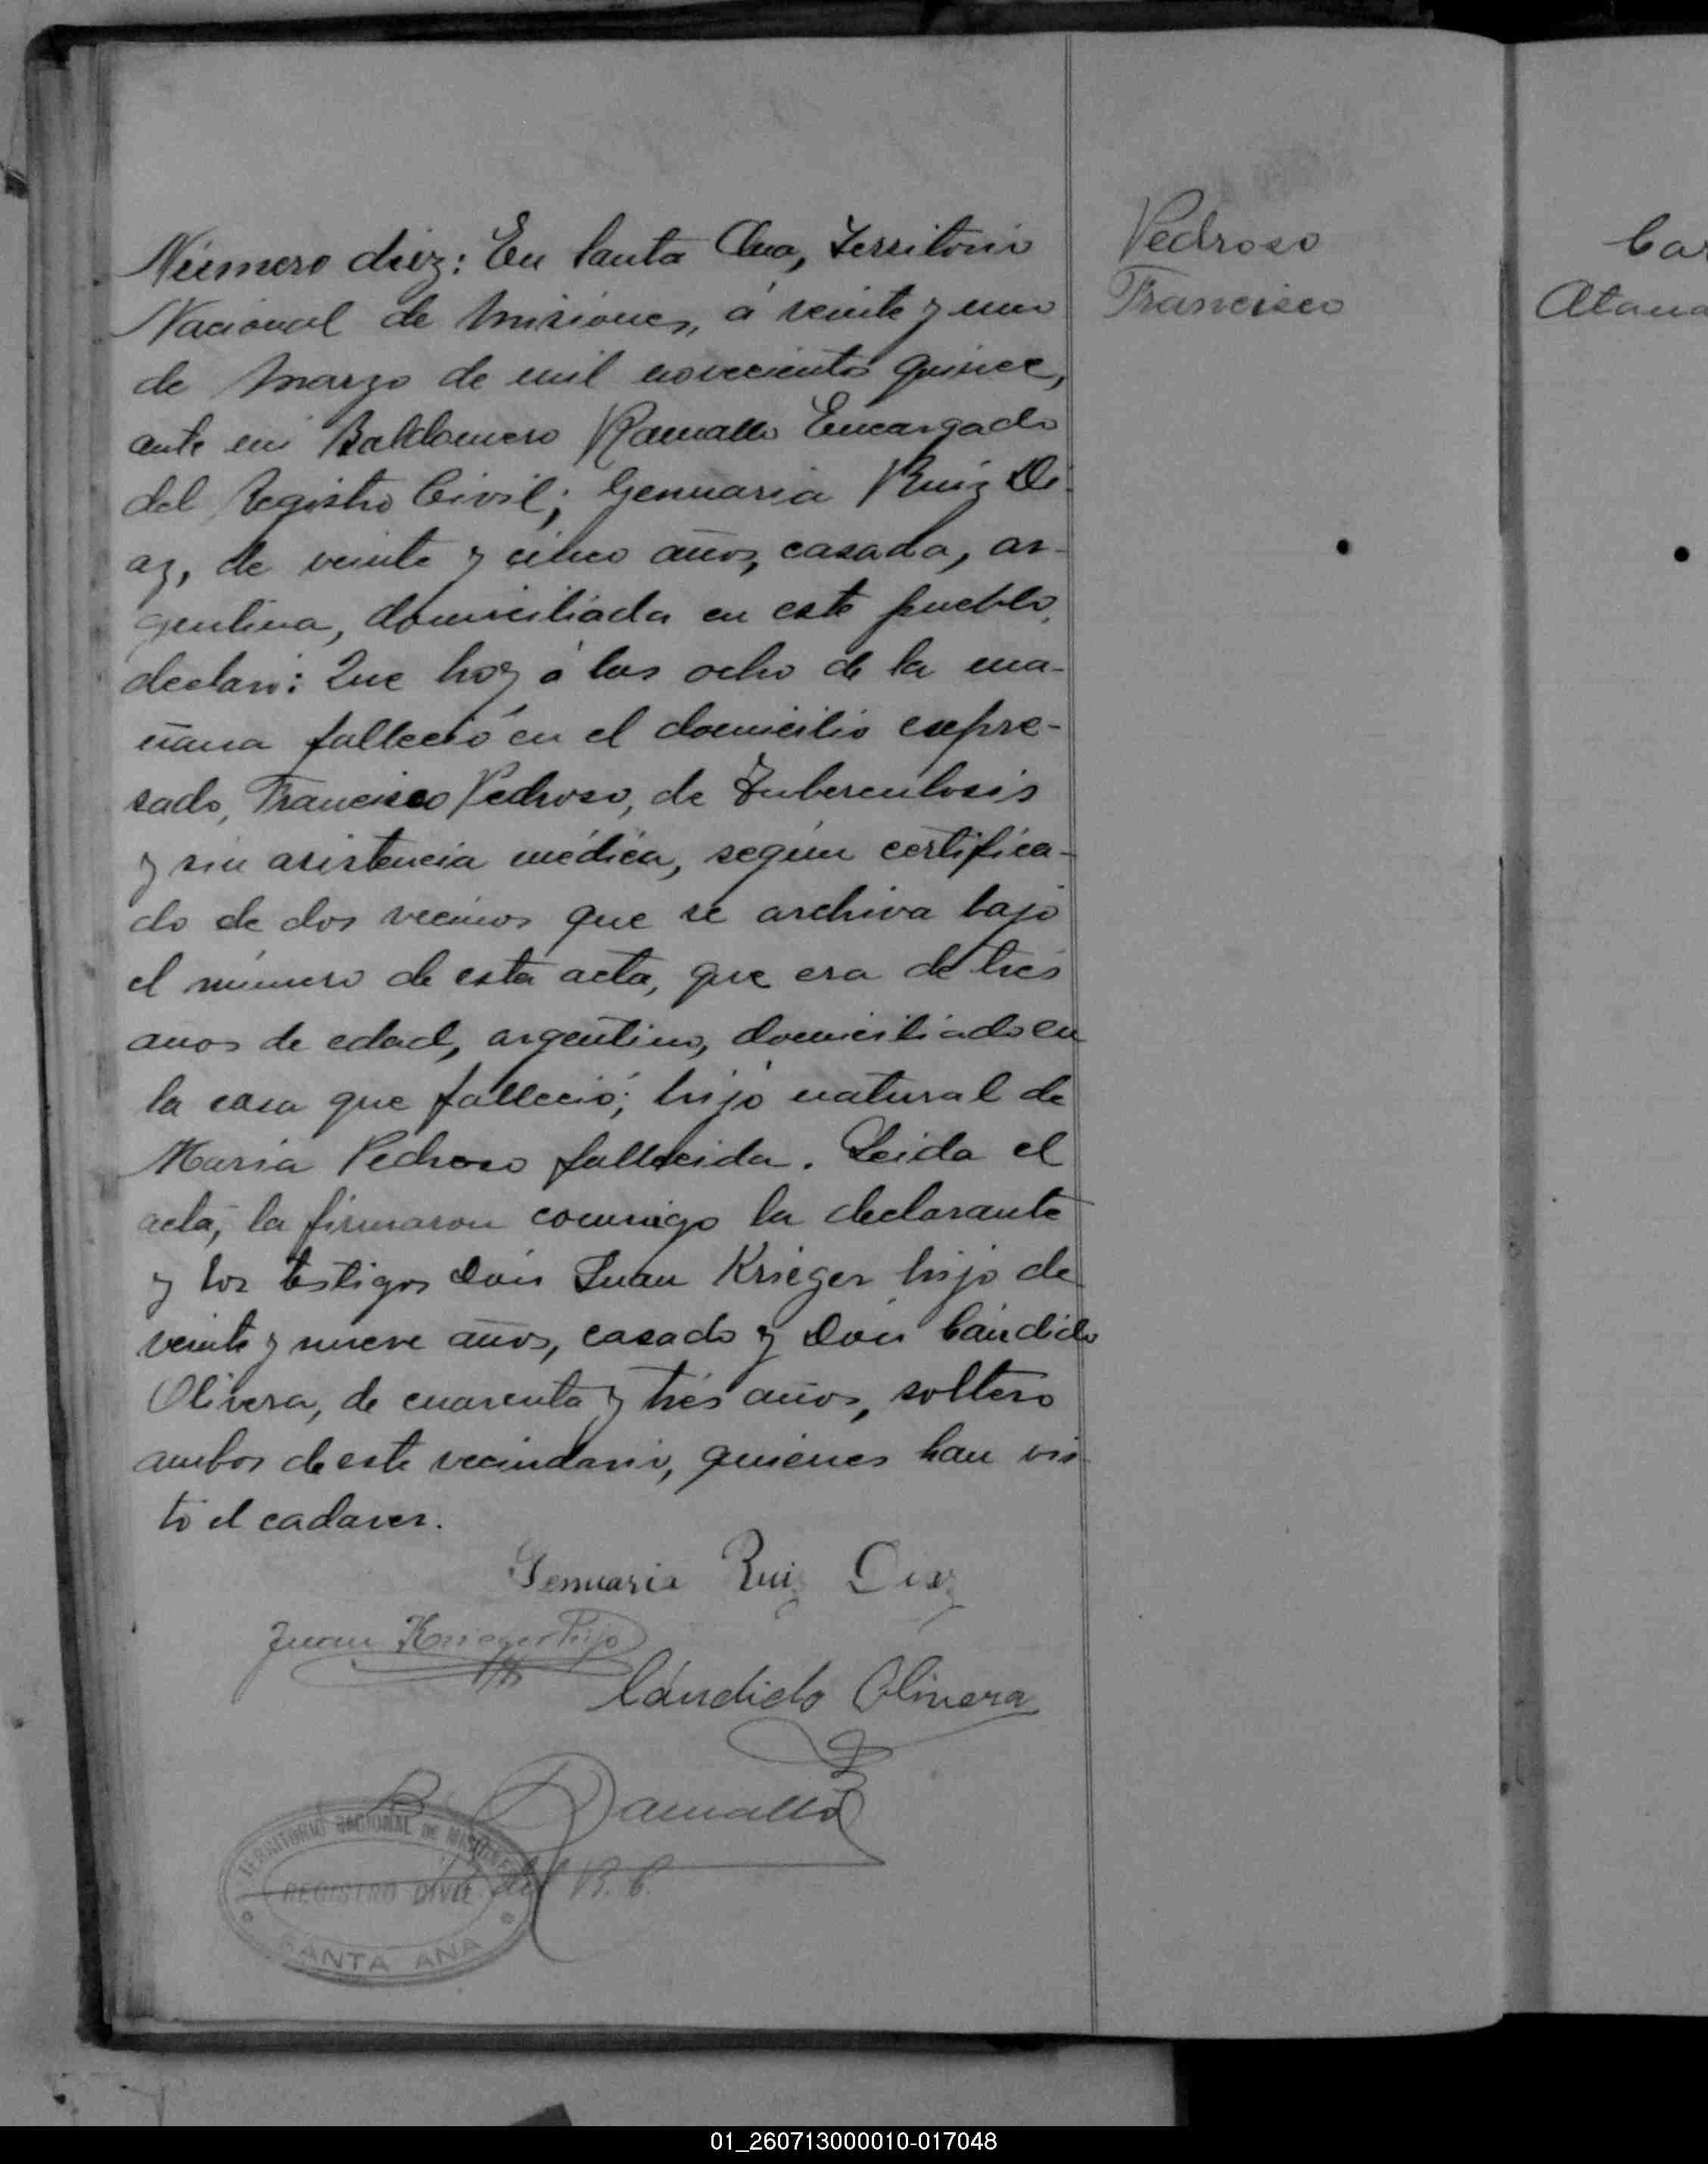 Número diez: En Santa Ana, Territorio
Nacional de Misiones, á veinte y uno
de Marzo de mil novecientos quince,
ante mi Baldomero Ramallo Encargado
del Registro Civil; Genuaria Ruiz Di-
az, de veinte y cinco años, casada, ar-
gentina, domiciliada en este pueblo,
declaró: Que hoy á las ocho de la ma-
ñana falleció en el domicilio expre-
sado, Francisco Pedroso, de Tuberculosis
y sin asistencia médica, según certifica-
do de dos vecinos que se archiva bajo
el número de esta acta, que era de tres
años de edad, argentino, domiciliado en
la casa que falleció; hijo natural de
Maria Pedroso fallecida. Leida el
acta, la firmaron conmigo la declarante
y los testigos Don Juan Krieger hijo de
veinte y nueve años, casado y Don Cándido
Olivera, de cuarenta y tres años, soltero
ambos de este vecindario, quienes han vis-
to el cadaver.
Genuaria Ruiz Diaz
Juan Krieger hijo
Cándido Olivera
B. Ramallo
del R. C.
TERRITORIO NACIONAL DE MISIONES
REGISTRO CIVIL
SANTA ANA
Pedroso
Francisco
Car
Atana
01_260713000010-017048